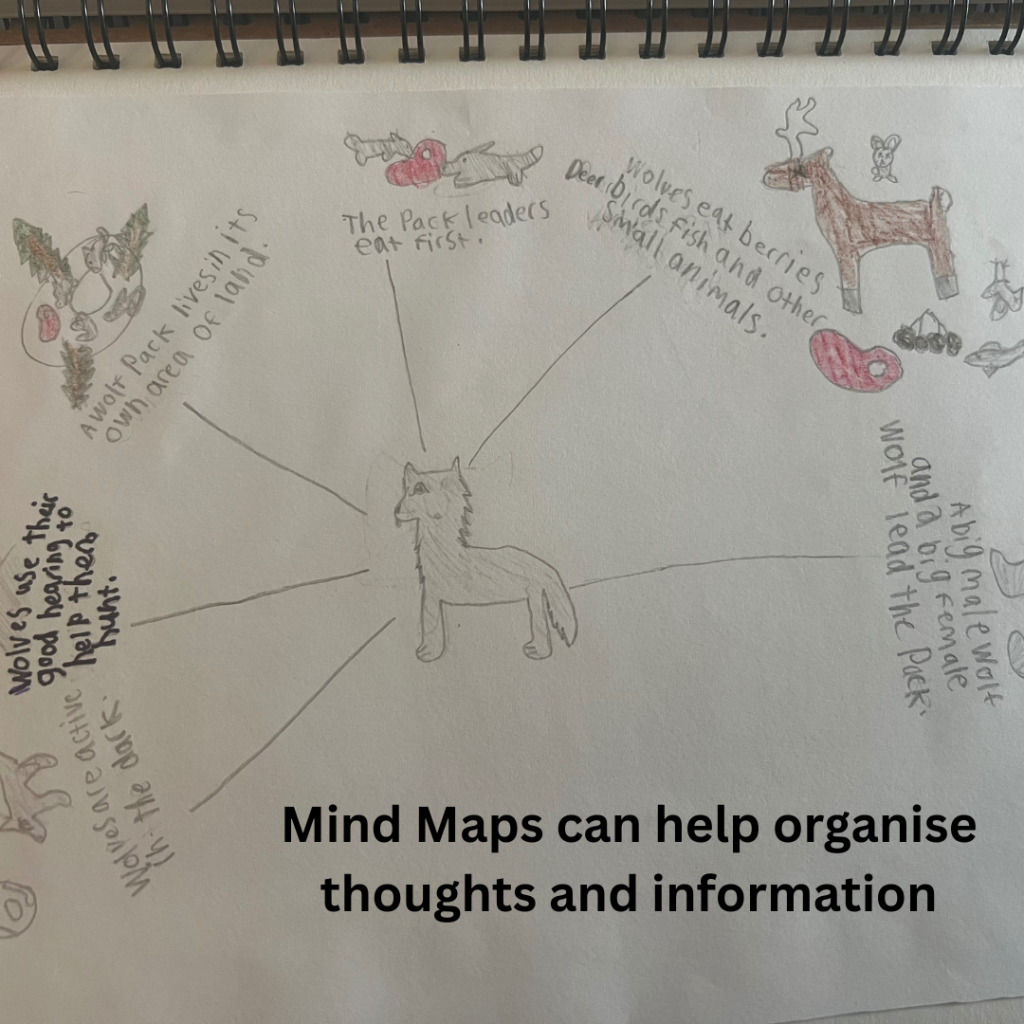 A wolf Pack lives in its
own area of land.
The Pack leaders
eat first.
Wolves eat berries
Deer, birds, fish and other
small animals.
A big male wolf
and a big female
wolf lead the Pack.
Wolves use their
good hearing to
help them
hunt.
Wolves are active
in the dark.
Mind Maps can help organise
thoughts and information